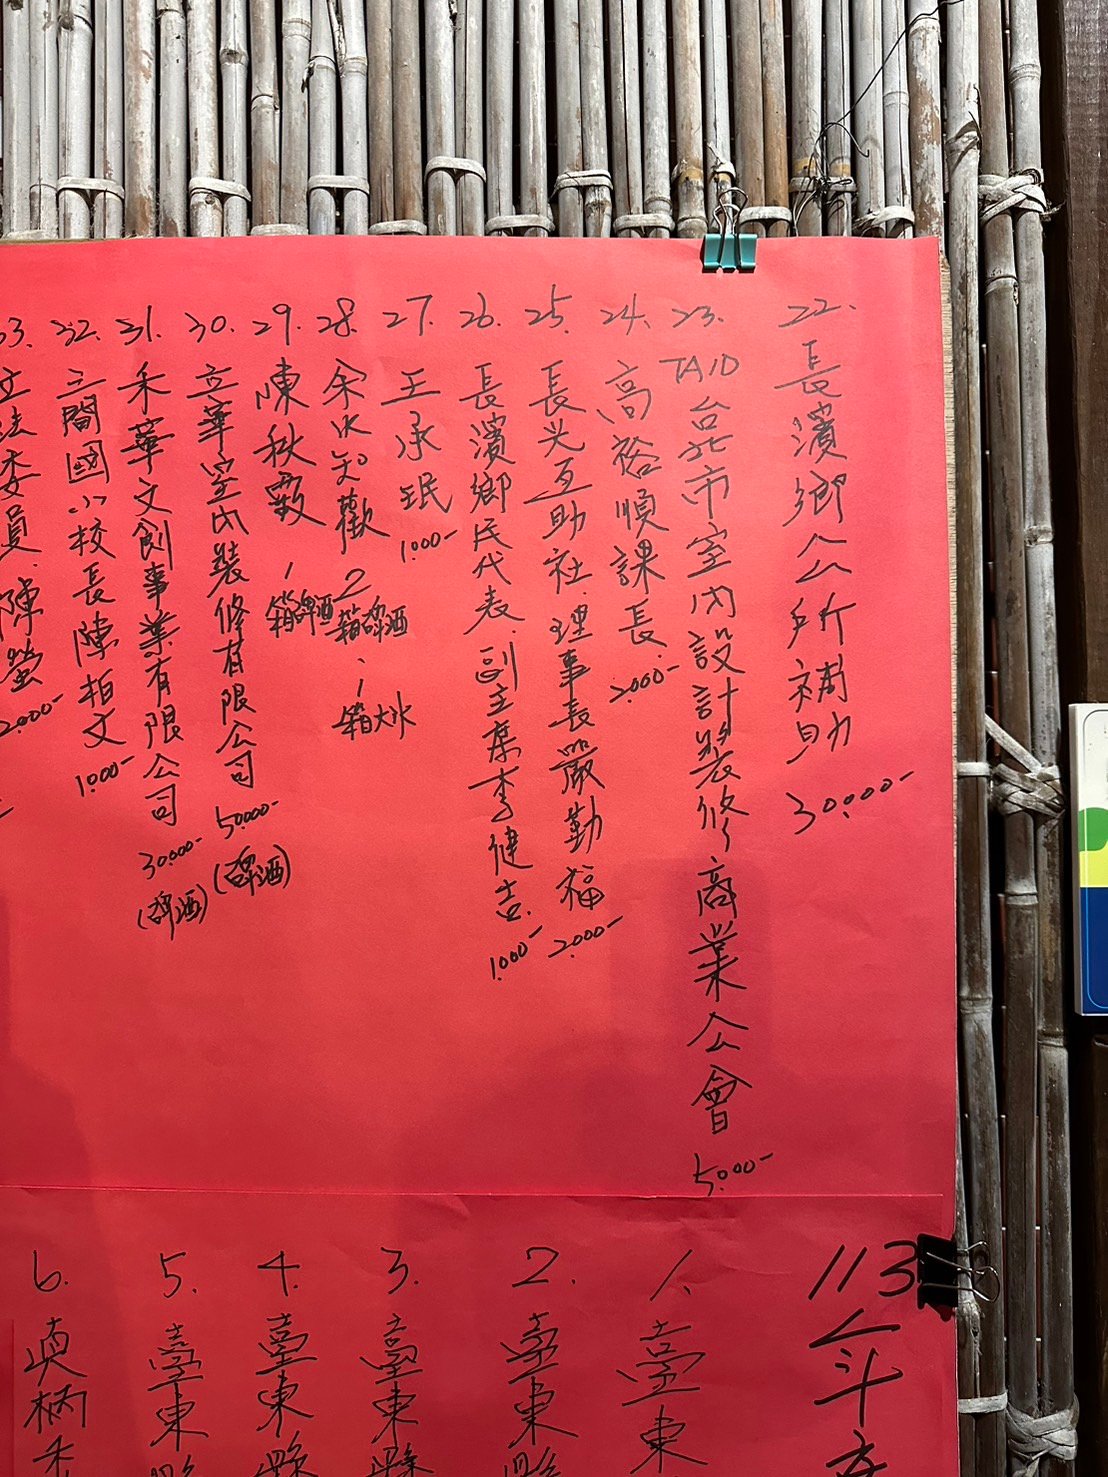 22. 長濱鄉公所補助 30.000-
23. TAID 台北市室內設計裝修商業公會 5.000-
24. 高裕順課長 2.000-
25. 長光互助社.理事長嚴勤福 2.000-
26. 長濱鄉民代表.副主席李健吉. 1.000-
27. 王承珉 1.000-
28. 余水知歡 2箱啤酒、1箱大水
29. 陳秋 1箱啤酒
30. 立華室內裝修有限公司 50.000- (啤酒)
31. 禾華文創事業有限公司 30.000- (啤酒)
32. 三間國小校長陳柏文 1.000-
33. 立法委員.陳瑩 2.000-
113
1. 臺東
2. 臺東縣
3. 臺東縣
4. 臺東縣
5. 臺東縣
6. 真柄